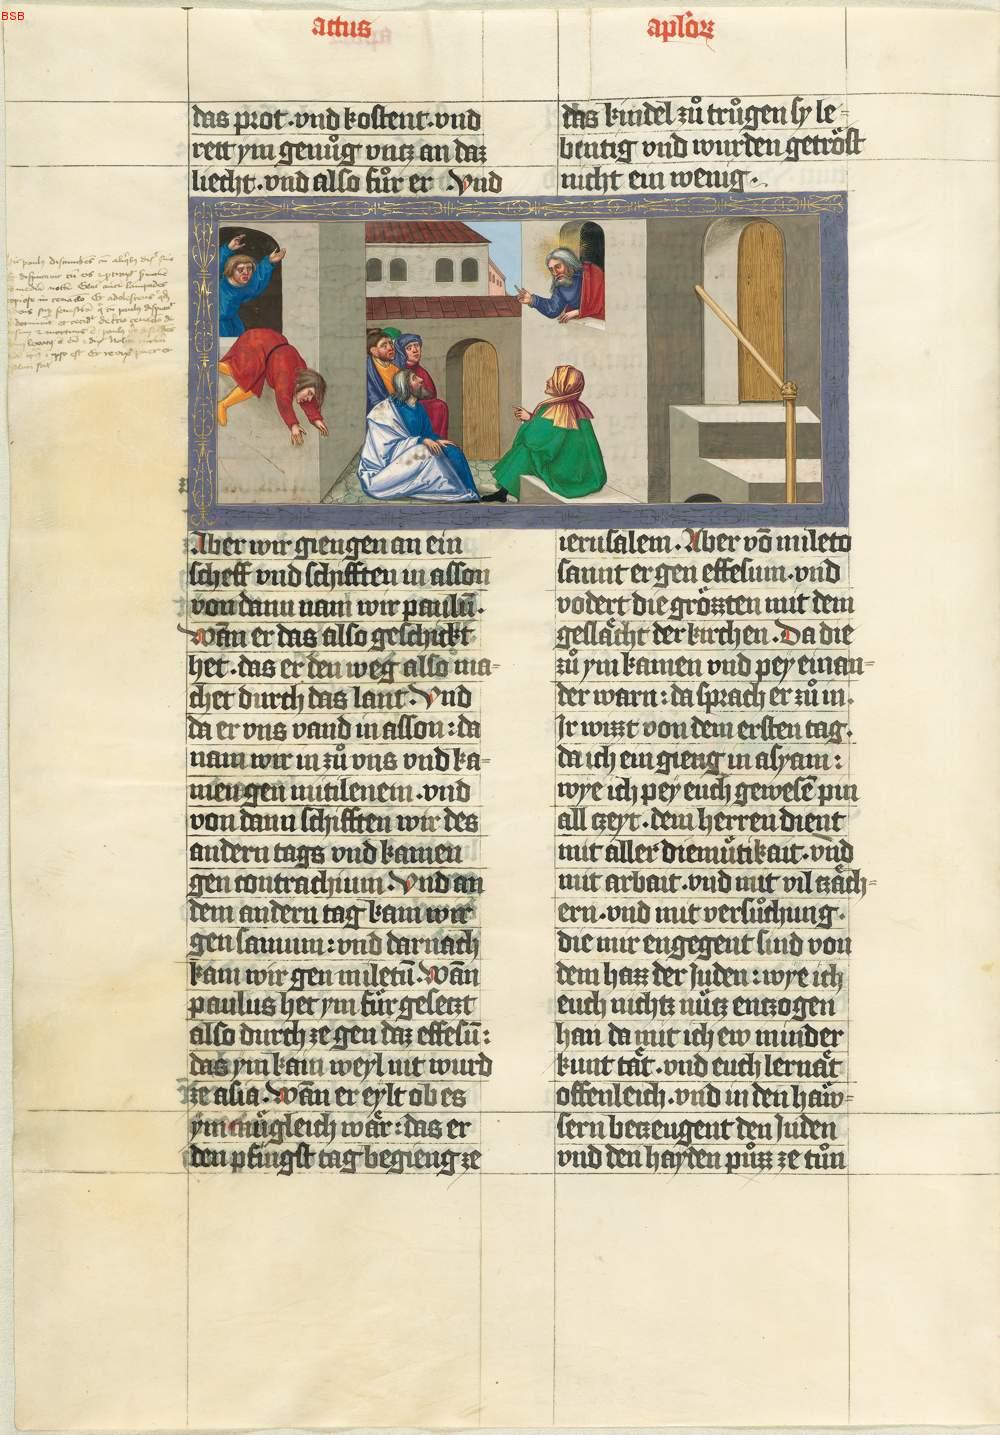 BSB
actus
aploꝝ
das prot · vnd kostent · vnd
rett ym genůg vntz an daz
liecht · vnd also fůr er · Vnd
das kindel zů trůgen sy le-
bentig vnd wurden getröst
nicht ein wenig ·
Aber wir giengen an ein
scheff vnd schifften in asson
von dann nam wir paulū ·
Wān er das also geschikt
het · das er den weg also ma-
chet durch das lant · Vnd
da er vns vand in asson : da
nam wir in zů vns vnd ka-
men gen mitilenem · vnd
von dann schifften wir des
andern tags vnd kamen
gen contrachium · Vnd an
dem andern tag kam wir
gen samum : vnd darnach
kam wir gen miletū · Wān
paulus het ym für gesetzt
also durch ze gen daz effesū :
das ym kain weyl nit wurd
ze asia · Wān er eylt ob es
ym mügleich wär : das er
den pfingst tag begieng ze
ierusalem · Aber vō mileto
sannt er gen effesum · vnd
vodert die grözzten mit dem
geslächt der kirchen · Da die
zů ym kamen vnd pey einan-
der warn : da sprach er zů in ·
Ir wizzt von dem ersten tag ·
da ich ein gieng in asyam :
wye ich pey euch gewesē pin
all czeyt · dem herren dient
mit aller diemütikait · vnd
mit arbait · vnd mit vil zäch-
ern · vnd mit versůchung ·
die mir engegent sind von
dem hazz der Juden : wye ich
euch nichtz nütz entzogen
han da mit ich ew minder
kunt tät · vnd euch lernät
offenleich · vnd in den häw-
sern betzeugent den Juden
vnd den hayden půzz ze tůn